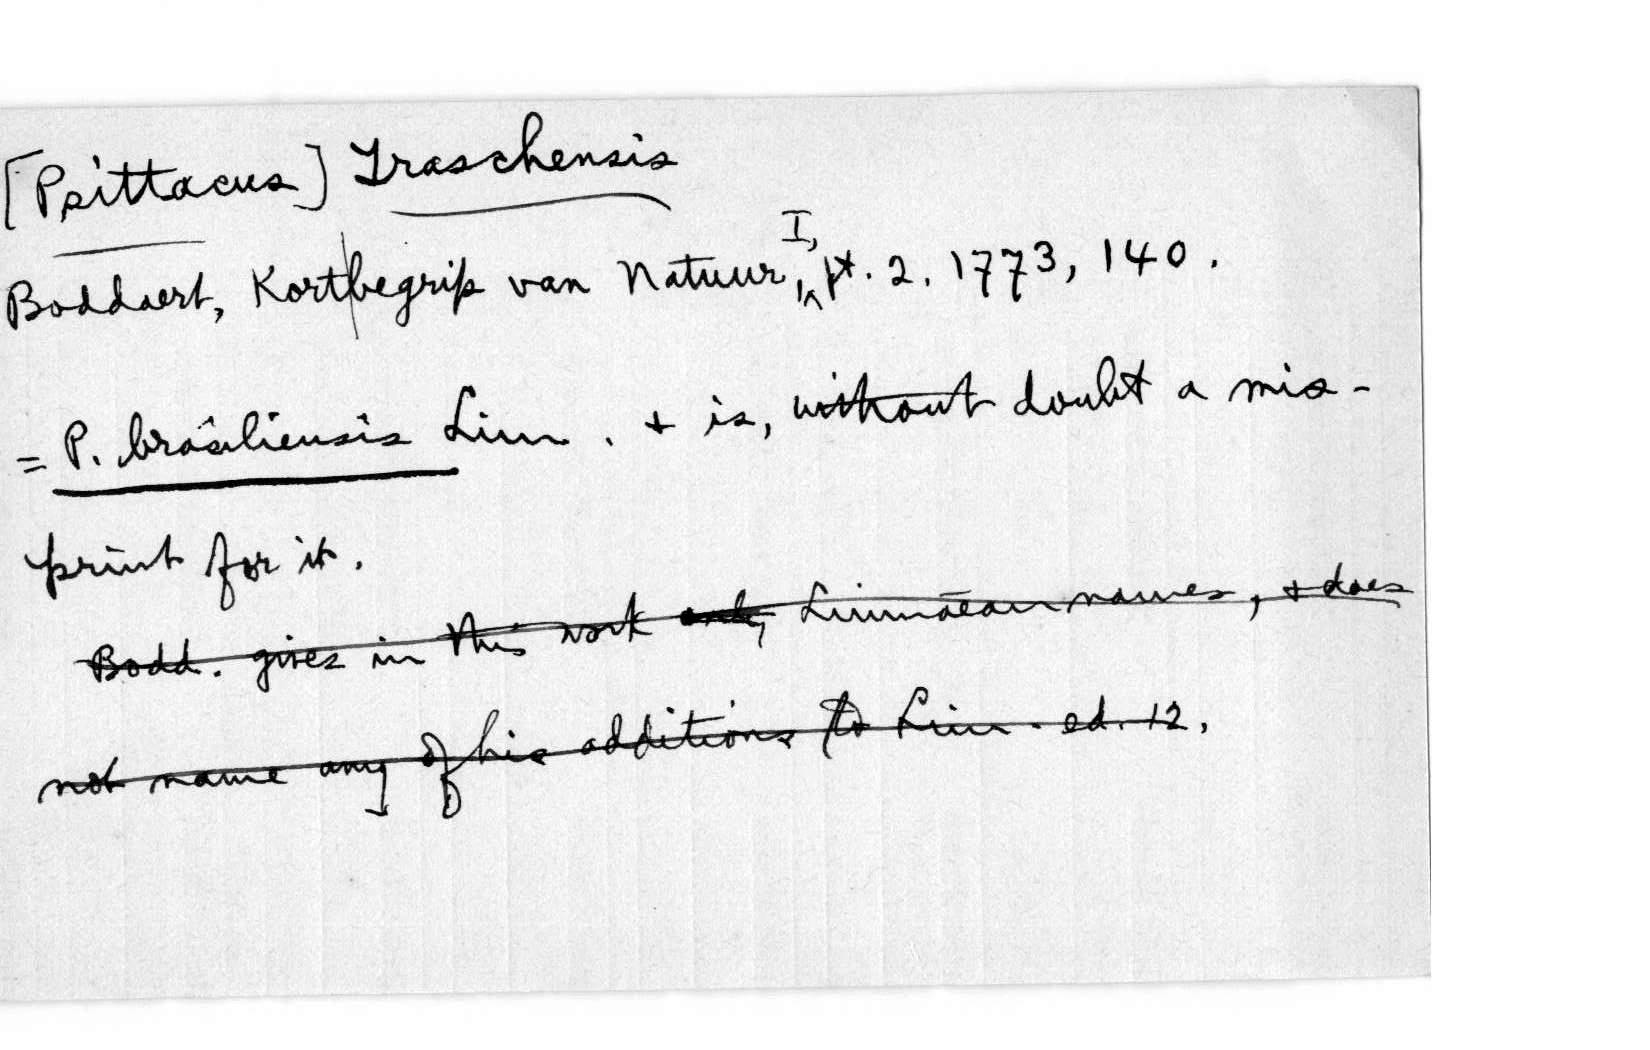 [Psittacus] Traschensis
Boddaert, Kort|begrip van Natuur, I, pt. 2. 1773, 140.
= P. brasiliensis Linn. + is, without doubt a mis-
print for it.
Bodd. gives in this work only Linnaean names, + does
not name any of his additions to Linn. ed. 12.